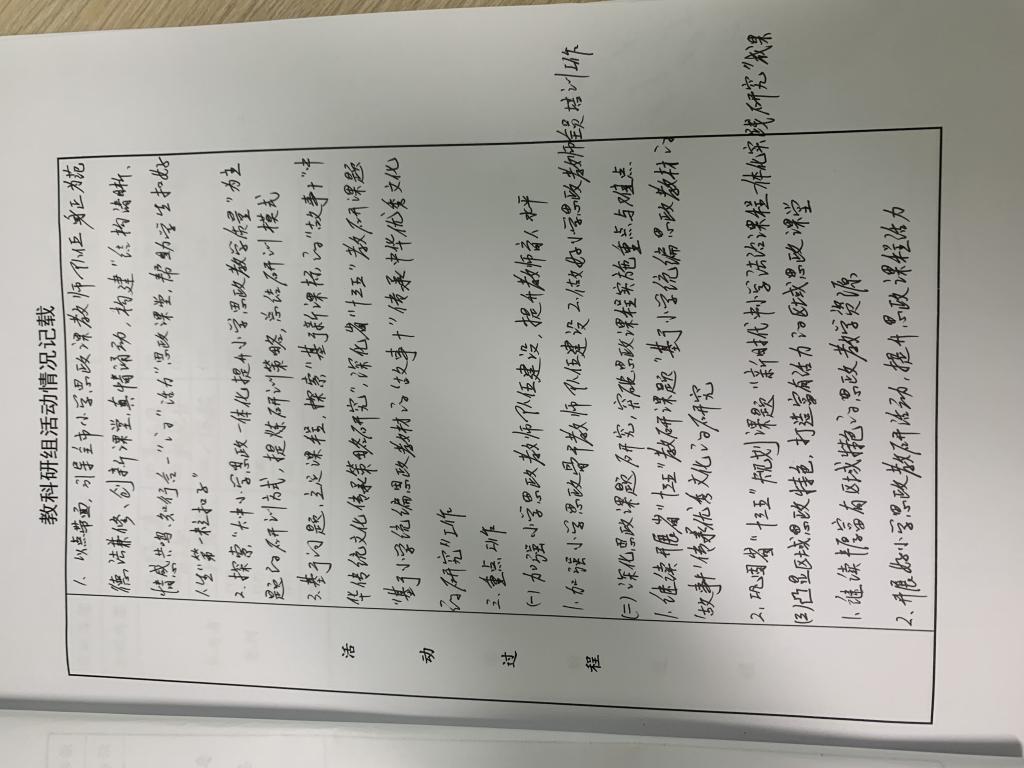 教科研组活动情况记载
活动过程
1. 以点带面，引导全市小学思政课教师队伍守正为范
德法兼修、创新课堂，真情涌动，构建“结构清晰、
情感共鸣、知行合一”的“活力”思政课堂，帮助学生扣好
人生“第一粒扣子”
2. 探索“大中小学思政一体化提升小学思政教学质量”为主
题的研训方式，提炼研训策略，总结研训模式
3. 基于问题，立足课程，探索“基于新课标的“故事+”中
华传统文化传承策略研究”，深化省“十三五”教研课题
“基于小学统编思政教材的“故事+”传承中华优秀文化
的研究”工作
三、重点工作
(一) 加强小学思政教师队伍建设，提升教师育人水平
1. 加强小学思政骨干教师队伍建设 2. 做好小学思政教师全员培训工作
(二) 深化思政课题研究，突破思政课程实施重点与难点
1. 继续开展省“十三五”教研课题“基于小学统编思政教材的
“故事+”传承优秀文化的研究
2. 巩固省“十三五”规划课题“新时代中小学法治课程一体化实践研究”成果
(三) 凸显区域思政特色，打造富有活力的区域思政课堂
1. 继续丰富有区域特色的思政教学资源
2. 开展好小学思政教研活动，提升思政课程活力